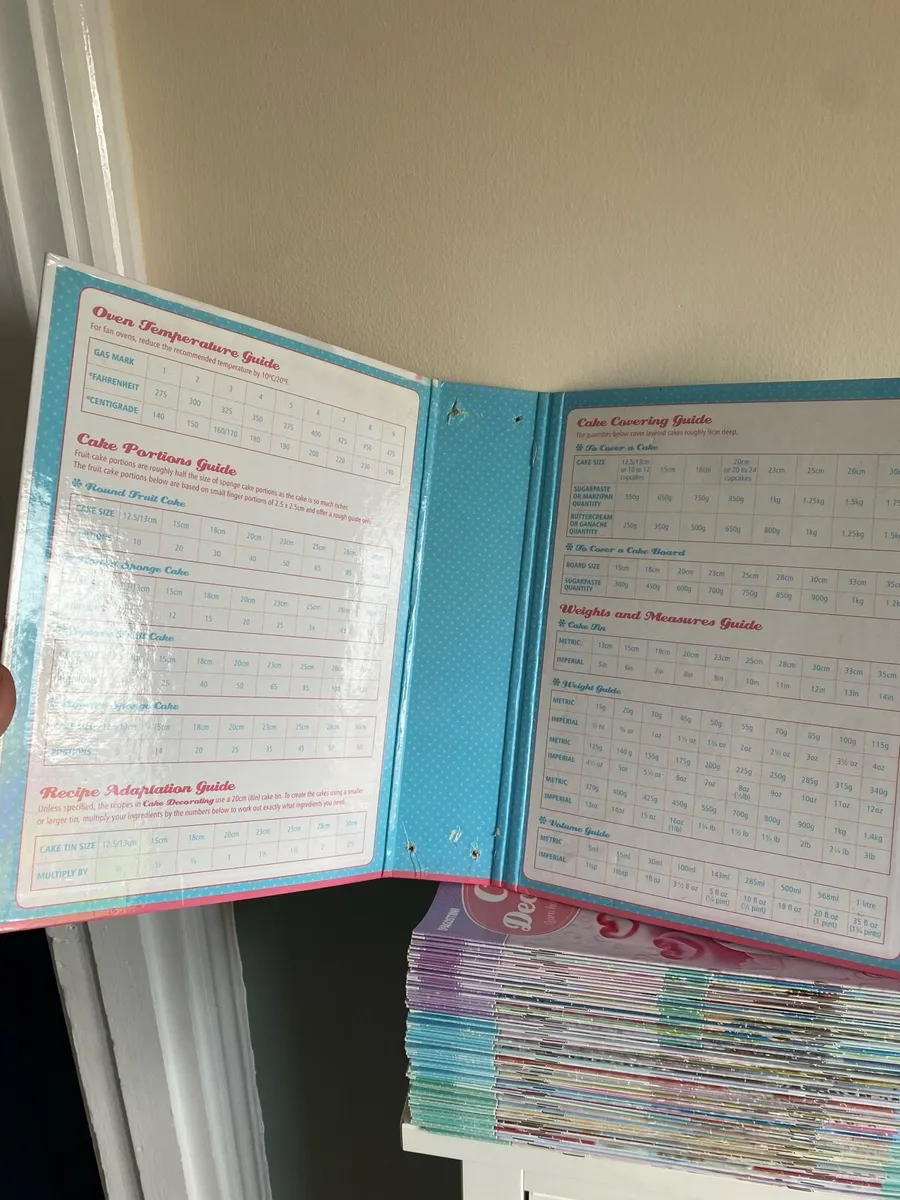 Oven Temperature Guide
For fan ovens, reduce the recommended temperature by 10°C/20°F.
GAS MARK 1 2 3 4 5 6 7 8 9
°FAHRENHEIT 275 300 325 350 375 400 425 450 475
°CENTIGRADE 140 150 160/170 180 190 200 220 230 240
Cake Portions Guide
Fruit cake portions are roughly half the size of sponge cake portions as the cake is so much richer.
The fruit cake portions below are based on small finger portions of 2.5 x 2.5cm and offer a rough guide only.
Round Fruit Cake
CAKE SIZE 12.5/13cm 15cm 18cm 20cm 23cm 25cm 28cm
10 20 30 40 50 65 85
Sponge Cake
15cm 18cm 20cm 23cm 25cm 28cm
12 15 20 25
Cake
15cm 18cm 20cm 23cm 25cm
25 40 50 65 85
Sponge Cake
CAKE SIZE 15cm 18cm 20cm 23cm 25cm 28cm
PORTIONS 14 20 25 35 45
Recipe Adaptation Guide
Unless specified, the recipes in Cake Decorating use a 20cm (8in) cake tin. To create the cakes using a smaller
or larger tin, multiply your ingredients by the numbers below to work out exactly what ingredients you need.
CAKE TIN SIZE 12.5/13cm 15cm 18cm 20cm 23cm 25cm 28cm 30cm
MULTIPLY BY
Cake Covering Guide
The quantities below cover layered cakes roughly 9cm deep.
To Cover a Cake
CAKE SIZE 12.5/13cm or 10 to 12 cupcakes 15cm 18cm 20cm or 20 to 24 cupcakes 23cm 25cm 28cm
SUGARPASTE OR MARZIPAN QUANTITY 550g 650g 750g 850g 1kg 1.25kg 1.5kg
BUTTERCREAM OR GANACHE QUANTITY 250g 350g 500g 650g 800g 1kg 1.25kg
To Cover a Cake Board
BOARD SIZE 15cm 18cm 20cm 23cm 25cm 28cm 30cm 33cm 35cm
SUGARPASTE QUANTITY 300g 450g 600g 700g 750g 850g 900g 1kg
Weights and Measures Guide
Cake Tin
METRIC 13cm 15cm 18cm 20cm 23cm 25cm 28cm 30cm 33cm 35cm
IMPERIAL 5in 6in 7in 8in 9in 10in 11in 12in 13in 14in
Weight Guide
METRIC 15g 20g 30g 45g 50g 55g 70g 85g 100g 115g
IMPERIAL ½ oz ¾ oz 1oz 1½ oz 1¾ oz 2oz 2½ oz 3oz 3½ oz 4oz
METRIC 125g 140g 155g 175g 200g 225g 250g 285g 315g 340g
IMPERIAL 4½ oz 5oz 5½ oz 6oz 7oz 8oz (½lb) 9oz 10oz 11oz 12oz
METRIC 370g 400g 425g 450g 550g 700g 800g 900g 1kg 1.4kg
IMPERIAL 13oz 14oz 15oz 16oz (1lb) 1¼ lb 1½ lb 1¾ lb 2lb 2¼ lb 3lb
Volume Guide
METRIC 5ml 15ml 30ml 100ml 143ml 285ml 500ml 568ml 1 litre
IMPERIAL 1tsp 1tbsp 1fl oz 3½ fl oz 5 fl oz (¼ pint) 10 fl oz (½ pint) 18 fl oz 20 fl oz (1 pint) 35 fl oz (1¾ pints)